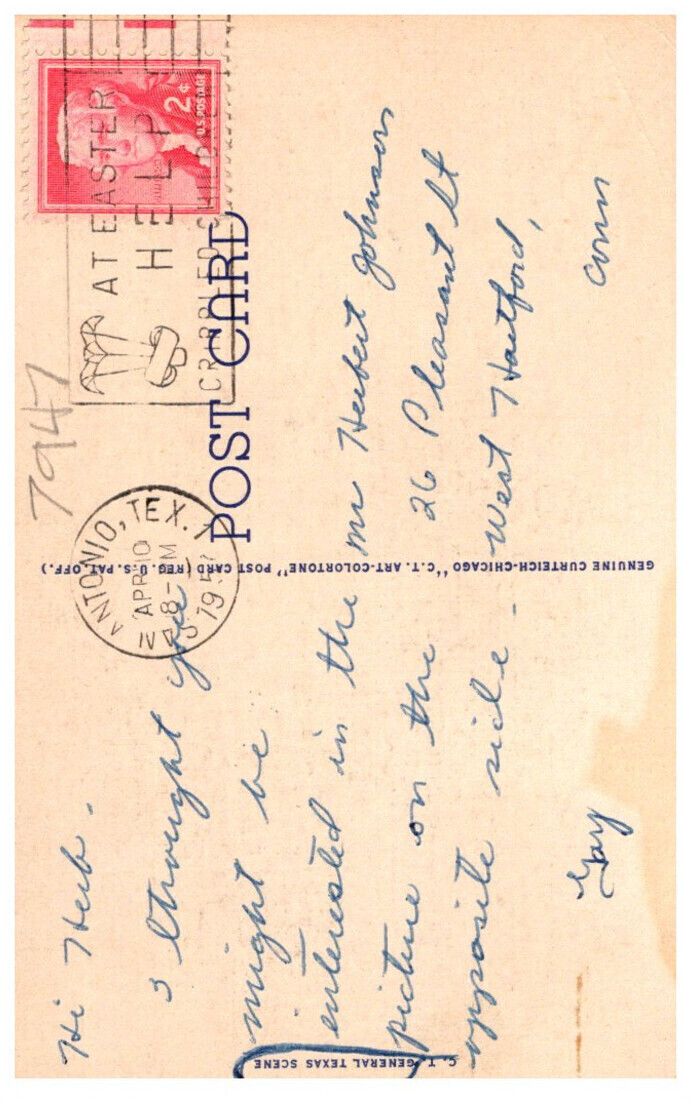 Hi Herb.
I thought you
might be
interested in the
picture on the
opposite side.
Gay
C. T. GENERAL TEXAS SCENE
GENUINE CURTEICH-CHICAGO "C.T. ART-COLORTONE" POST CARD (REG. U.S. PAT. OFF.)
7947
ANTONIO, TEX.
APR 10
8-PM
195
AT EASTER
HELP
CRIPPLED CHILD
2¢
U.S. POSTAGE
POST CARD
Mr Herbert Johnson
26 Pleasant St
West Hartford,
Conn